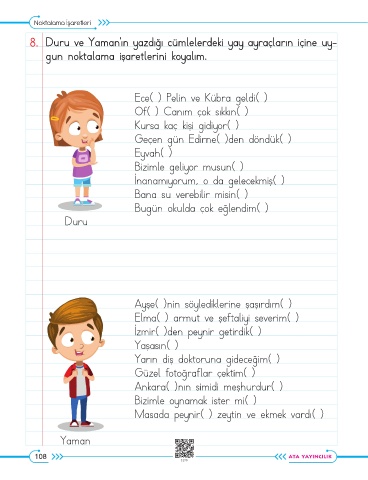 Noktalama İşaretleri
8. Duru ve Yaman'ın yazdığı cümlelerdeki yay ayraçların içine uy-
gun noktalama işaretlerini koyalım.
Ece( ) Pelin ve Kübra geldi( )
Of( ) Canım çok sıkkın( )
Kursa kaç kişi gidiyor( )
Geçen gün Edirne( )den döndük( )
Eyvah( )
Bizimle geliyor musun( )
İnanamıyorum, o da gelecekmiş( )
Bana su verebilir misin( )
Bugün okulda çok eğlendim( )
Duru
Ayşe( )nin söylediklerine şaşırdım( )
Elma( ) armut ve şeftaliyi severim( )
İzmir( )den peynir getirdik( )
Yaşasın( )
Yarın diş doktoruna gideceğim( )
Güzel fotoğraflar çektim( )
Ankara( )nın simidi meşhurdur( )
Bizimle oynamak ister mi( )
Masada peynir( ) zeytin ve ekmek vardı( )
Yaman
108
ATA YAYINCILIK